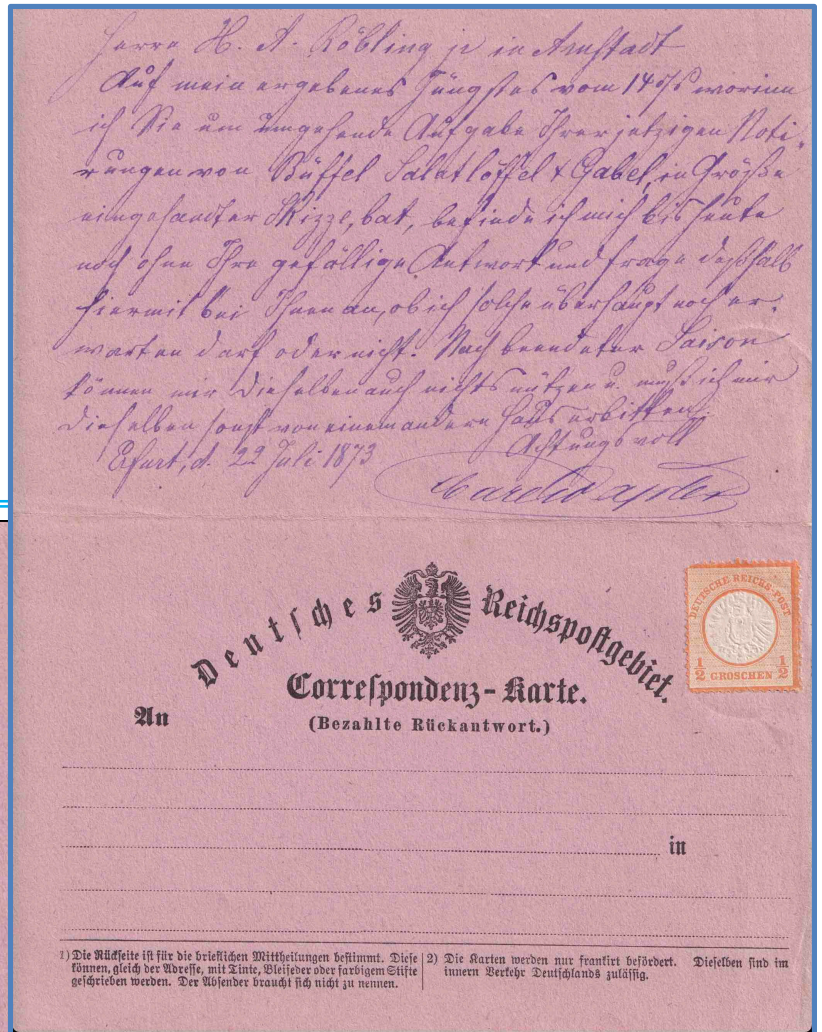 Herrn H. A. Röbling jr in Arnstadt
Auf mein ergebenes Jüngstes vom 14 d/s worinn
ich Sie um umgehende Aufgabe Ihrer jetzigen Noti-
rungen von Büffel Salatlöffel & Gabel, in Größe
eingesandter Skizze, bat, befinde ich mich bis heute
noch ohne Ihre gefällige Antwort und frage deßhalb
hiermit bei Ihnen an, ob ich solche überhaupt noch er-
warten darf oder nicht. Nach beendeter Saison
können mir dieselben auch nichts nützen u. muß ich mir
dieselben sonst von einem andern Haus erbitten.
Achtungsvoll
Erfurt, d. 22 Juli 1873
DEUTSCHE REICHS-POST
1/2 GROSCHEN 1/2
Deutsches Reichspostgebiet.
Correspondenz-Karte.
(Bezahlte Rückantwort.)
An
in
1) Die Rückseite ist für die brieflichen Mittheilungen bestimmt. Diese
können, gleich der Adresse, mit Tinte, Bleifeder oder farbigem Stifte
geschrieben werden. Der Absender braucht sich nicht zu nennen.
2) Die Karten werden nur frankirt befördert. Dieselben sind im
innern Verkehr Deutschlands zulässig.